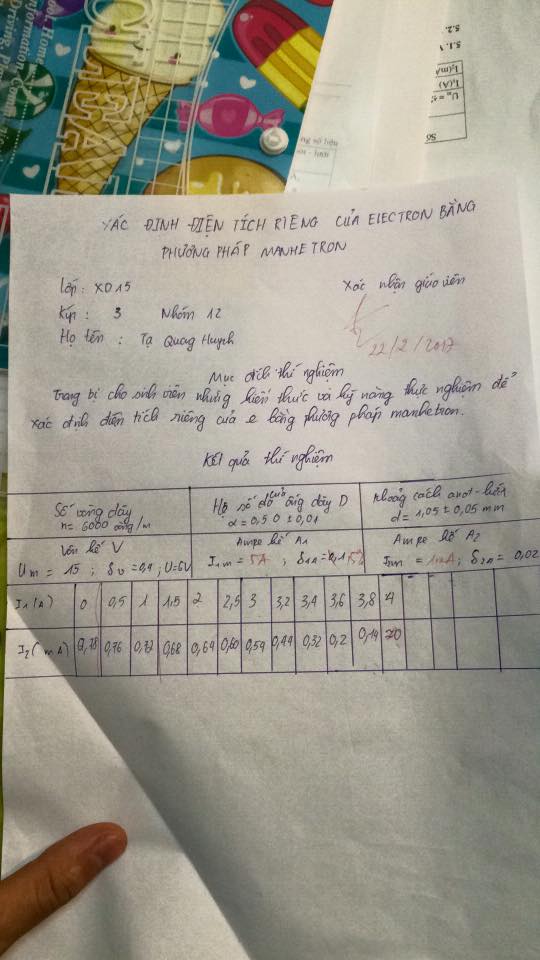 CREAM
5.2.
5.1. V
I₂(mA
I₁(A)
Số
XÁC ĐỊNH ĐIỆN TÍCH RIÊNG CỦA ELECTRON BẰNG
PHƯƠNG PHÁP MANHETRON
Lớp : XD15
Xác nhận giáo viên
Kíp : 3 Nhóm 12
Họ tên : Tạ Quang Huynh
22/2/2017
Mục đích thí nghiệm
Trang bị cho sinh viên những kiến thức và kỹ năng thực nghiệm để
xác định điện tích riêng của e bằng phương pháp manhetron.
Kết quả thí nghiệm
Số vòng dây
n= 6000 vòng/m
Hệ số đo của ống dây D
α = 0,50 ± 0,01
Khoảng cách anot - lưới
d = 1,05 ± 0,05 mm
Vôn kế V
Um = 15 ; δv = 0,4 ; U=6V
Ampe kế A1
I1m = 5A ; δ1A =
Ampe kế A2
= 1mA ; δ2A = 0,02
I1(A) 0 0,5 1 1,5 2 2,5 3 3,2 3,4 3,6 3,8 4
I2(mA) 0,78 0,76 0,72 0,68 0,64 0,60 0,54 0,44 0,32 0,2 0,14